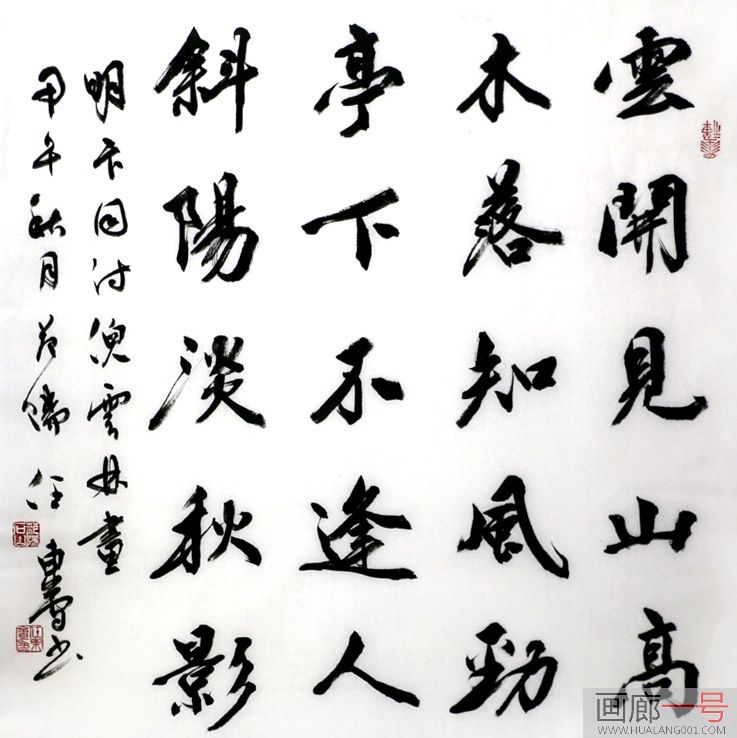 雲開見山高
木落知風勁
亭下不逢人
斜陽淡秋影
明卞同詩倪雲林畫
甲午秋月 任書
画廊一号
WWW.HUALANG001.COM